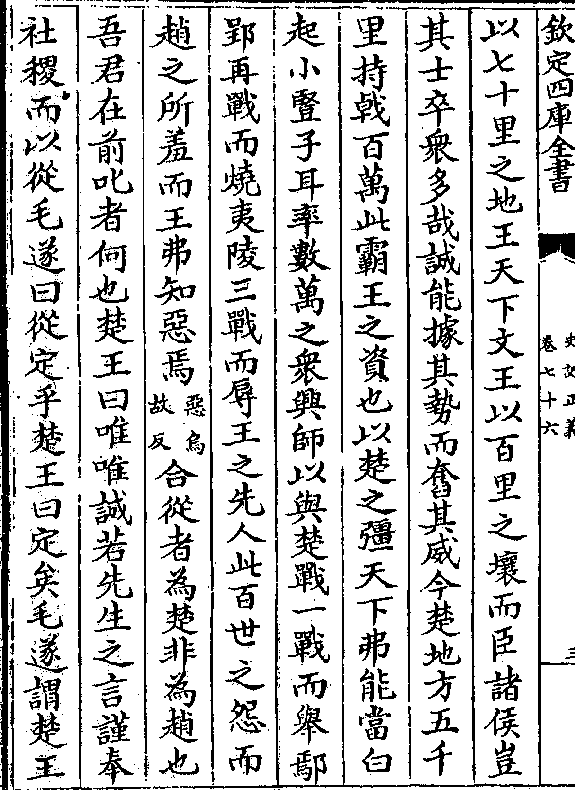 欽定四庫全書
史記正義
卷七十六
三
以七十里之地王天下文王以百里之壤而臣諸侯豈
其士卒衆多哉誠能據其勢而奮其威今楚地方五千
里持㦸百萬此霸王之資也以楚之彊天下弗能當白
起小豎子耳率數萬之衆興師以與楚戰一戰而舉鄢
郢再戰而燒夷陵三戰而辱王之先人此百世之怨而
趙之所羞而王弗知惡焉惡烏故反合從者為楚非為趙也
吾君在前叱者何也楚王曰唯唯誠若先生之言謹奉
社稷而以從毛遂曰從定乎楚王曰定矣毛遂謂楚王